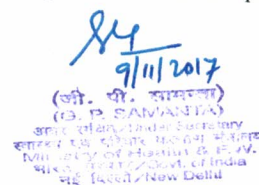 9/11/2017
(जी. पी. सामन्ता)
(G. P. SAMANTA)
अवर सचिव/Under Secretary
स्वास्थ्य एवं परिवार कल्याण मंत्रालय
Ministry of Health & F.W.
भारत सरकार/Govt. of India
नई दिल्ली/New Delhi